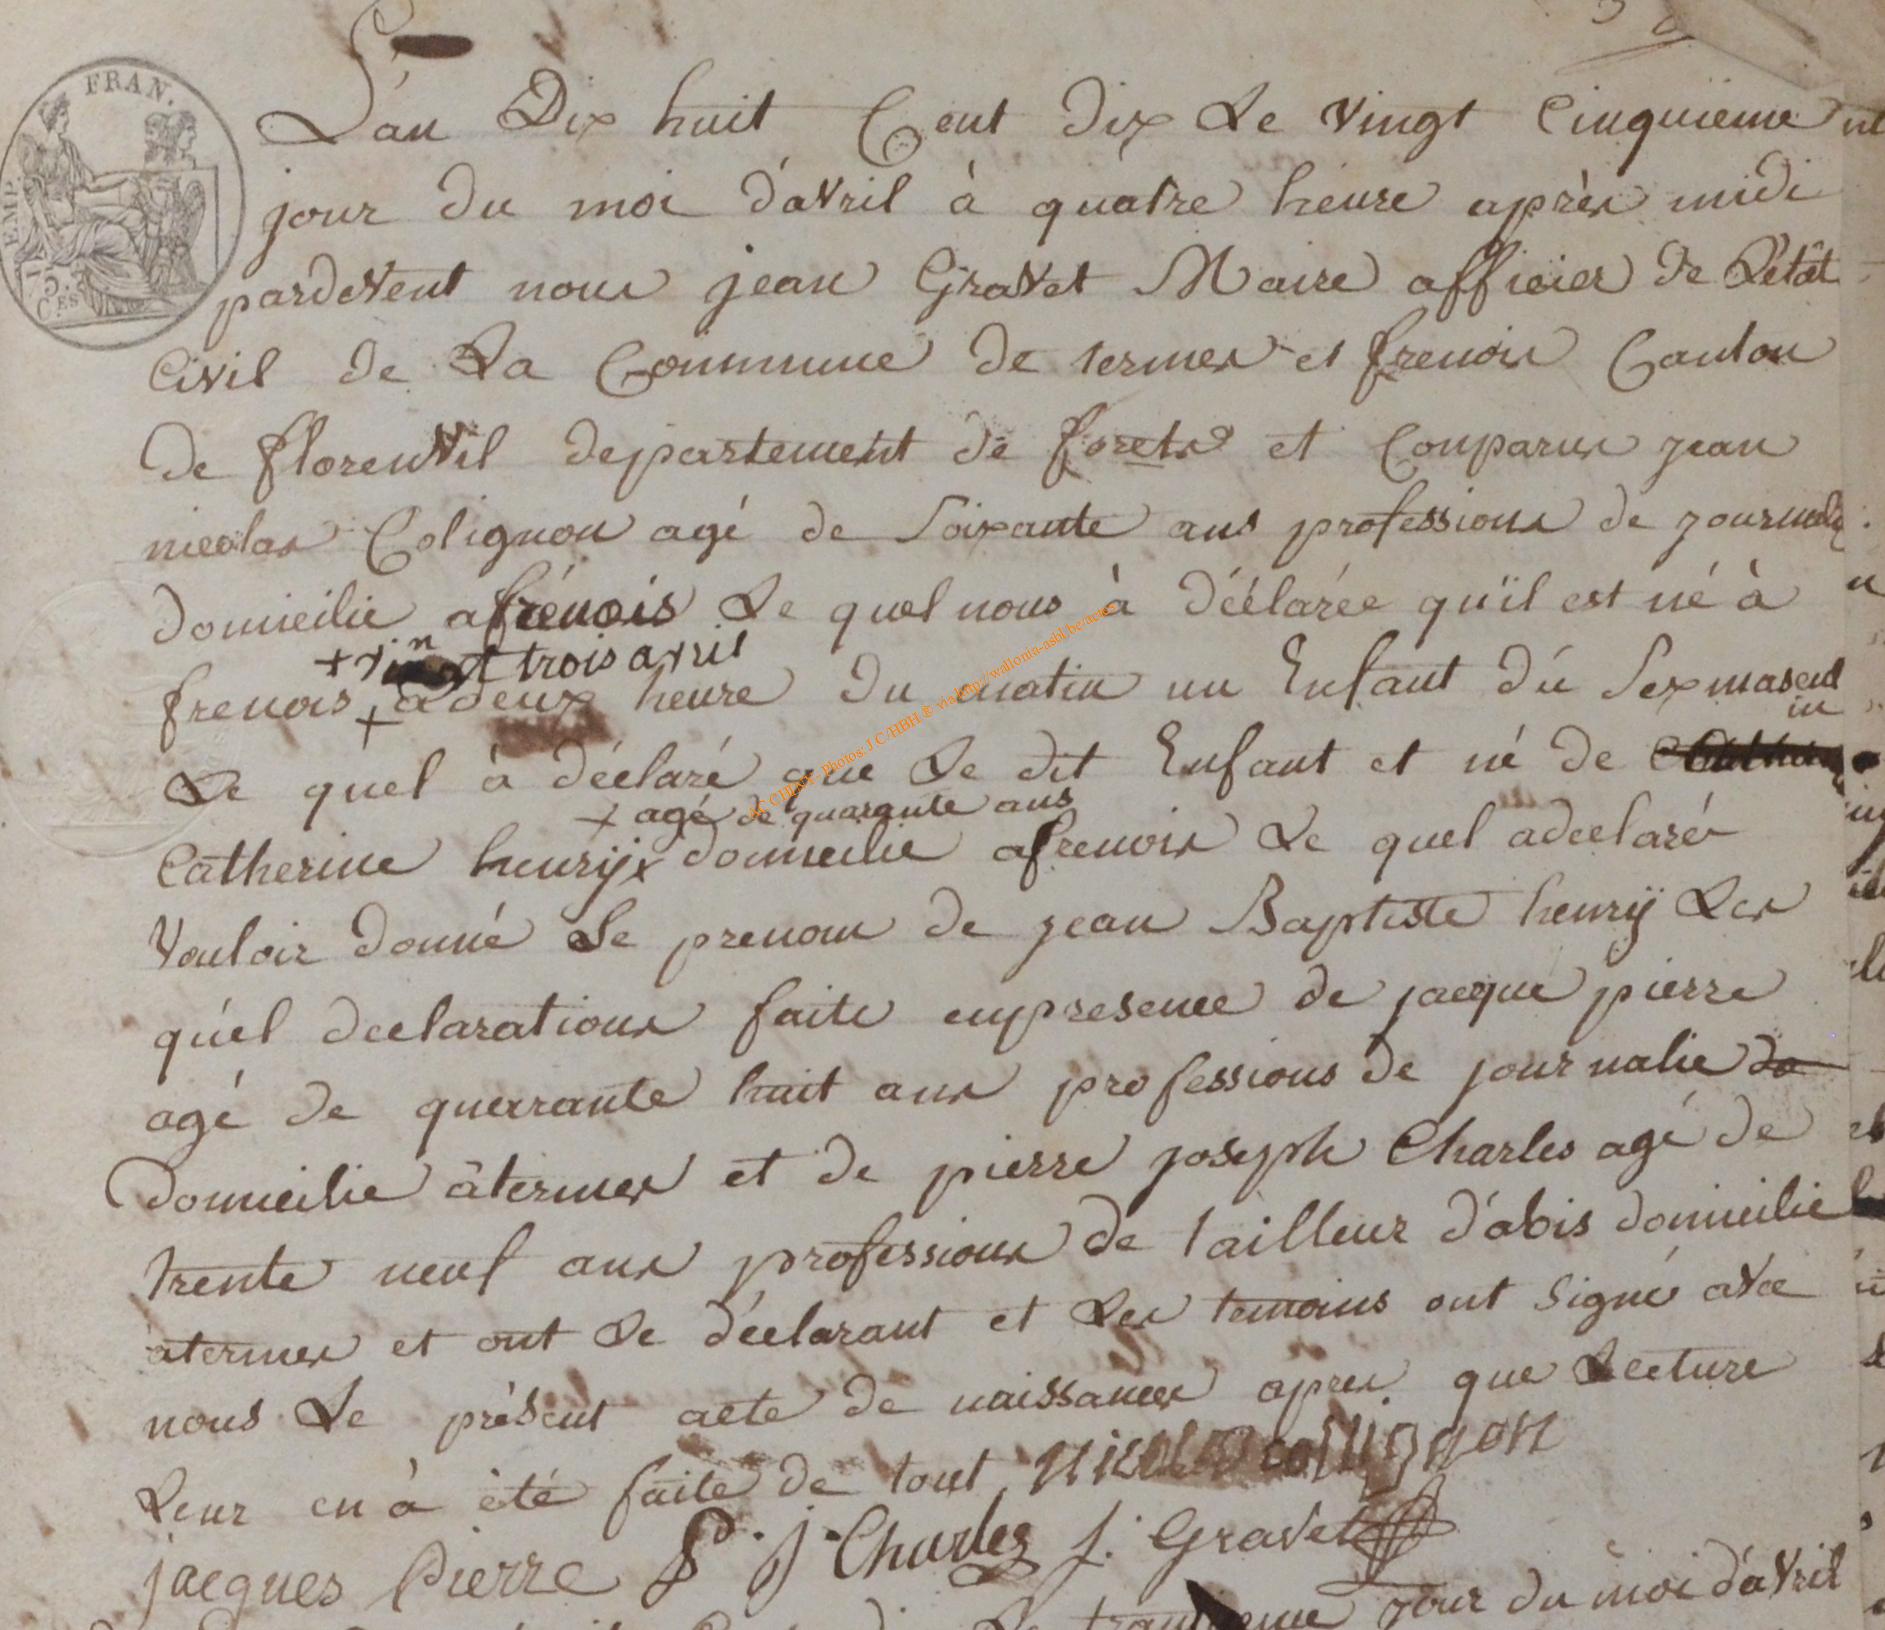 FRAN.
EMP.
75
C.ES
L'an Dix huit Cent dix Le vingt Cinquieme
jour du moi d'avril à quatre heure après midi
pardevent nous jean Gravet Maire afficier de L'étât
Civil de La Commune de termes et frenois Canton
de florenvil departement de forets et Conparus jean
nicolas Colignon agé de Soixante ans professions de journali
domicilie a frénois Le quel nous à déclarée qu'il est né à
+ vingt trois avril
frenois + a deux heure du matin un Enfant du Sex mascul
in
Le quel à déclaré que Le dit Enfant et né de
+ agé de quarante ans
Catherine henrÿ x domicilie a frenois Le quel a declaré
vouloir donné Le prenom de jean Baptiste henrÿ Les
quel declarations faite enpresence de jacque pierre
agé de querrante huit ans professions de journalie de
domicilie à termes et de pierre joseph Charles agé de
trente neuf ans professions de tailleur d'abis domicilie
a termes et ont Le déclarant et Les temoins ont Signé avec
nous Le présent acte de naissances apres que Lecture
Leur en à été faite de tout nicolas collignon
jacques Pierre P. j. Charles J. Gravet
jour du moi d'avril
AC CHINY - Photos J C/HBH ® via http://wallonia-asbl.be/actes